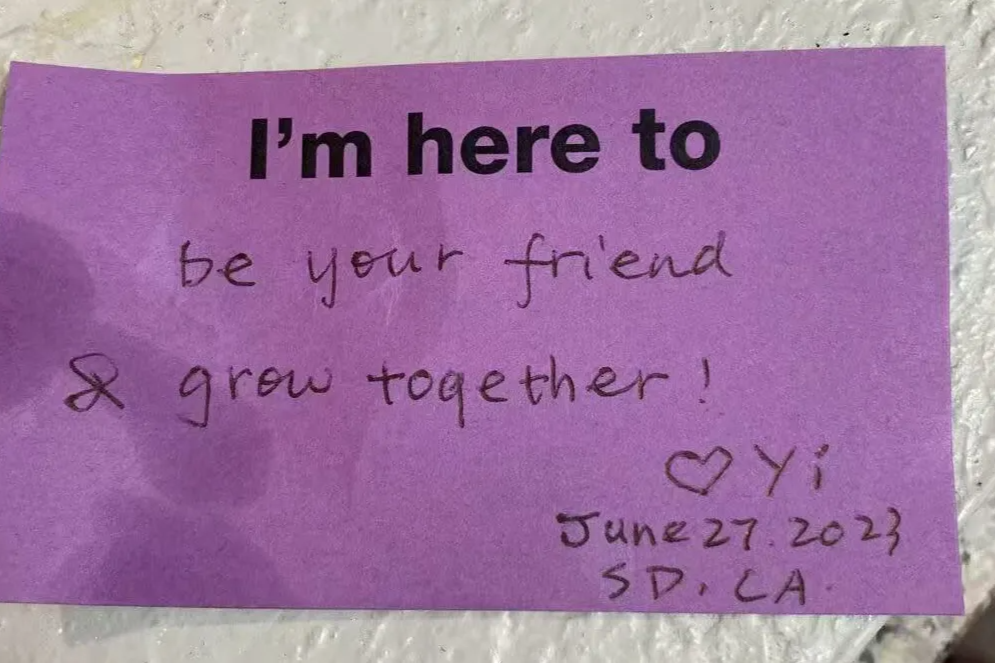 I'm here to
be your friend
& grow together!
♡ Yi
June 27. 2023
SD. CA.